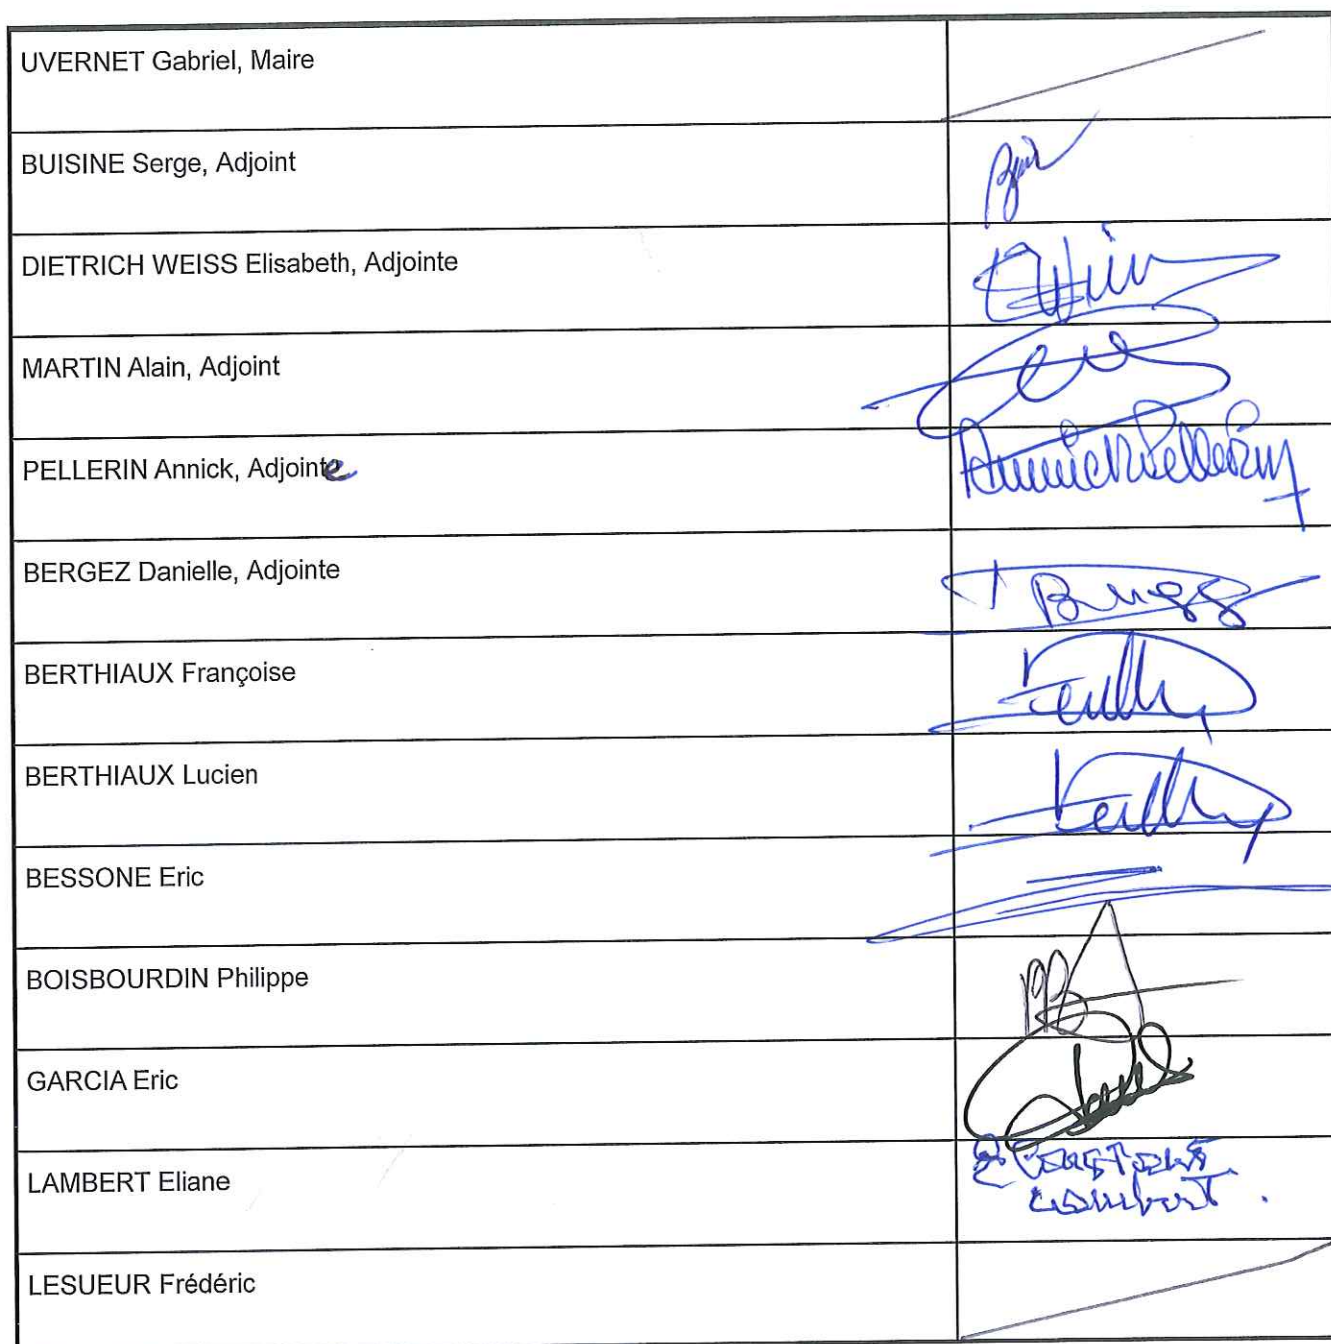 UVERNET Gabriel, Maire
BUISINE Serge, Adjoint
DIETRICH WEISS Elisabeth, Adjointe
MARTIN Alain, Adjoint
PELLERIN Annick, Adjointe
Annick Pellerin
BERGEZ Danielle, Adjointe
BERTHIAUX Françoise
BERTHIAUX Lucien
BESSONE Eric
BOISBOURDIN Philippe
GARCIA Eric
LAMBERT Eliane
Lambert.
LESUEUR Frédéric